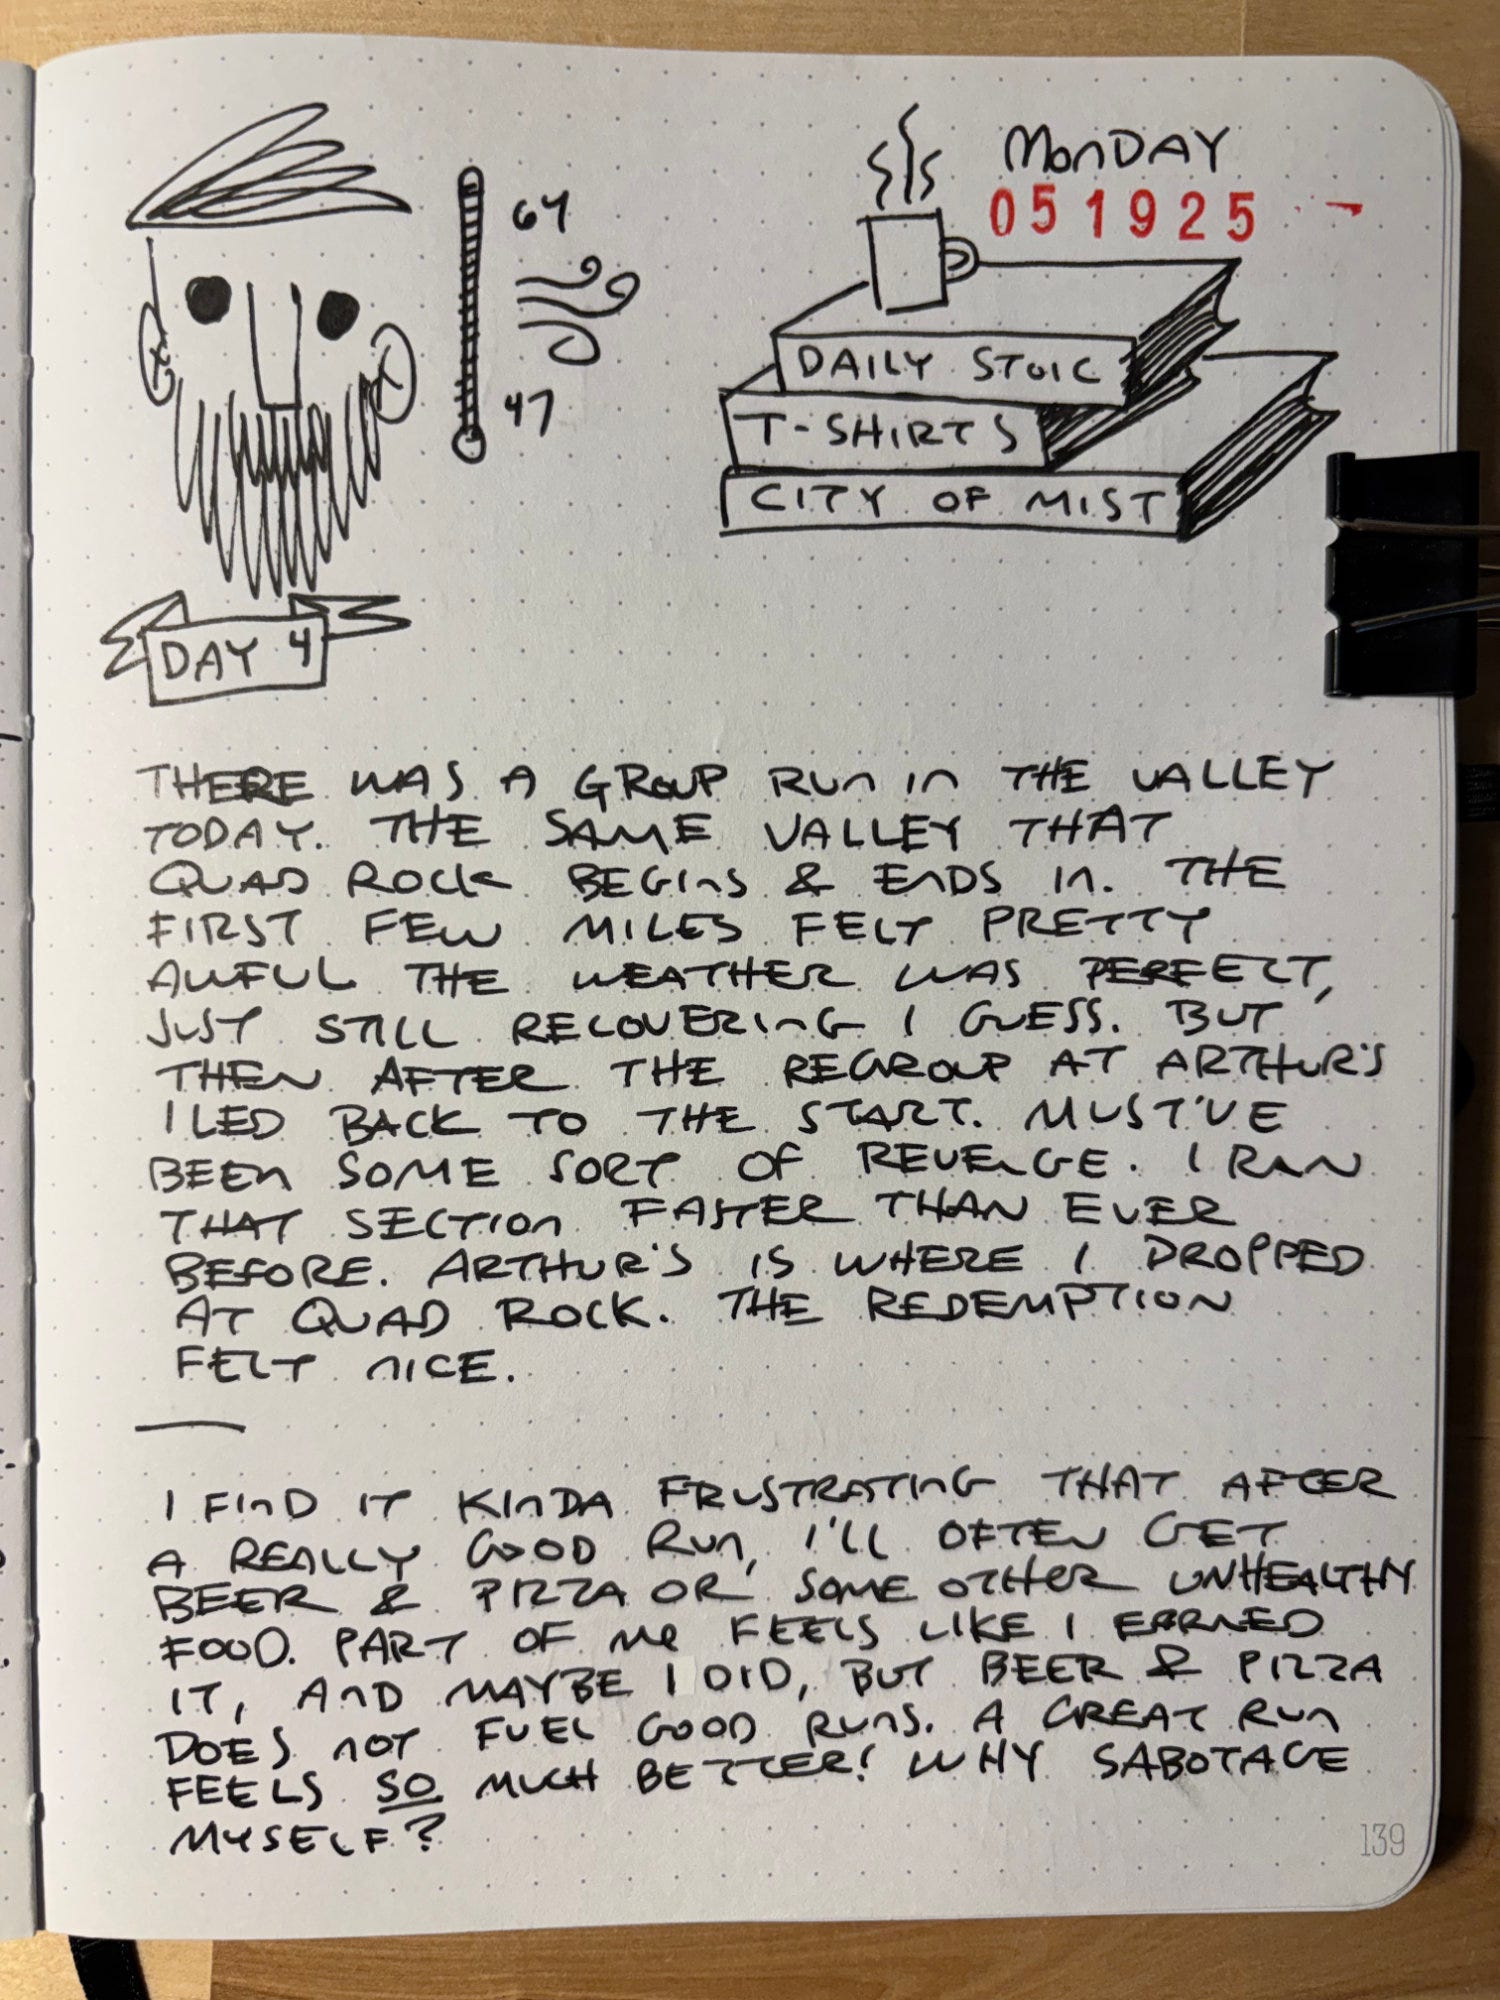 MONDAY
051925 -
64
47
DAILY STOIC
T-SHIRTS
CITY OF MIST
DAY 4
THERE WAS A GROUP RUN IN THE VALLEY
TODAY. THE SAME VALLEY THAT
QUAD ROCK BEGINS & ENDS IN. THE
FIRST FEW MILES FELT PRETTY
AWFUL THE WEATHER WAS PERFECT,
JUST STILL RECOVERING I GUESS. BUT
THEN AFTER THE REGROUP AT ARTHUR'S
I LED BACK TO THE START. MUST'VE
BEEN SOME SORT OF REVENGE. I RAN
THAT SECTION FASTER THAN EVER
BEFORE. ARTHUR'S IS WHERE I DROPPED
AT QUAD ROCK. THE REDEMPTION
FELT NICE.
I FIND IT KINDA FRUSTRATING THAT AFTER
A REALLY GOOD RUN, I'LL OFTEN GET
BEER & PIZZA OR SOME OTHER UNHEALTHY
FOOD. PART OF ME FEELS LIKE I EARNED
IT, AND MAYBE I DID, BUT BEER & PIZZA
DOES NOT FUEL GOOD RUNS. A GREAT RUN
FEELS SO MUCH BETTER! WHY SABOTAGE
MYSELF?
139